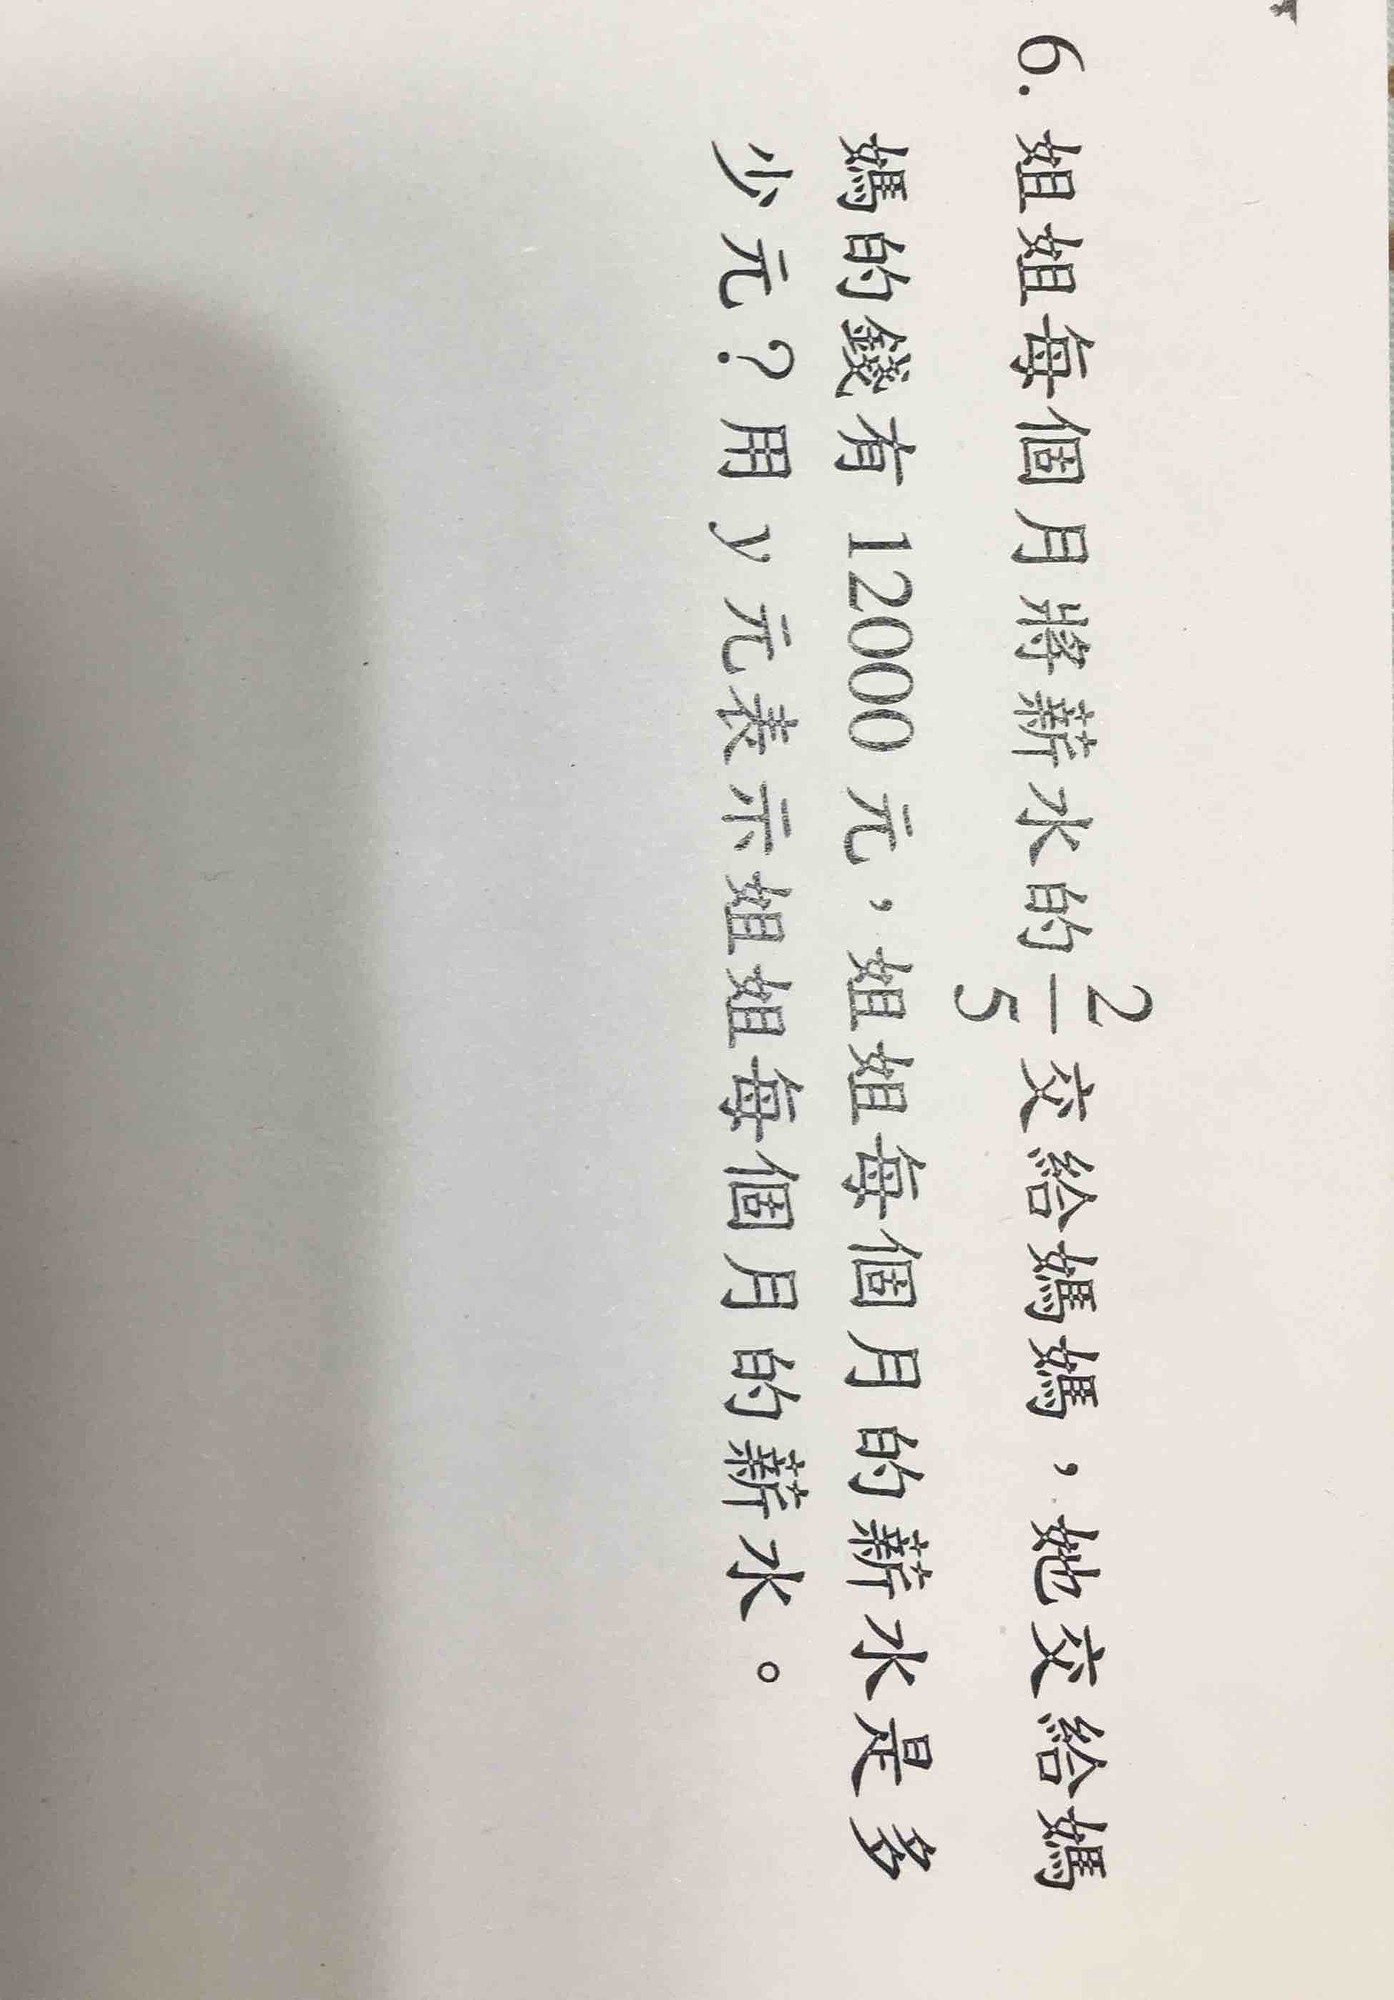 6. 姐姐每個月將薪水的 2/5 交給媽媽，她交給媽
媽的錢有 12000 元，姐姐每個月的薪水是多
少元？用 y 元表示姐姐每個月的薪水。